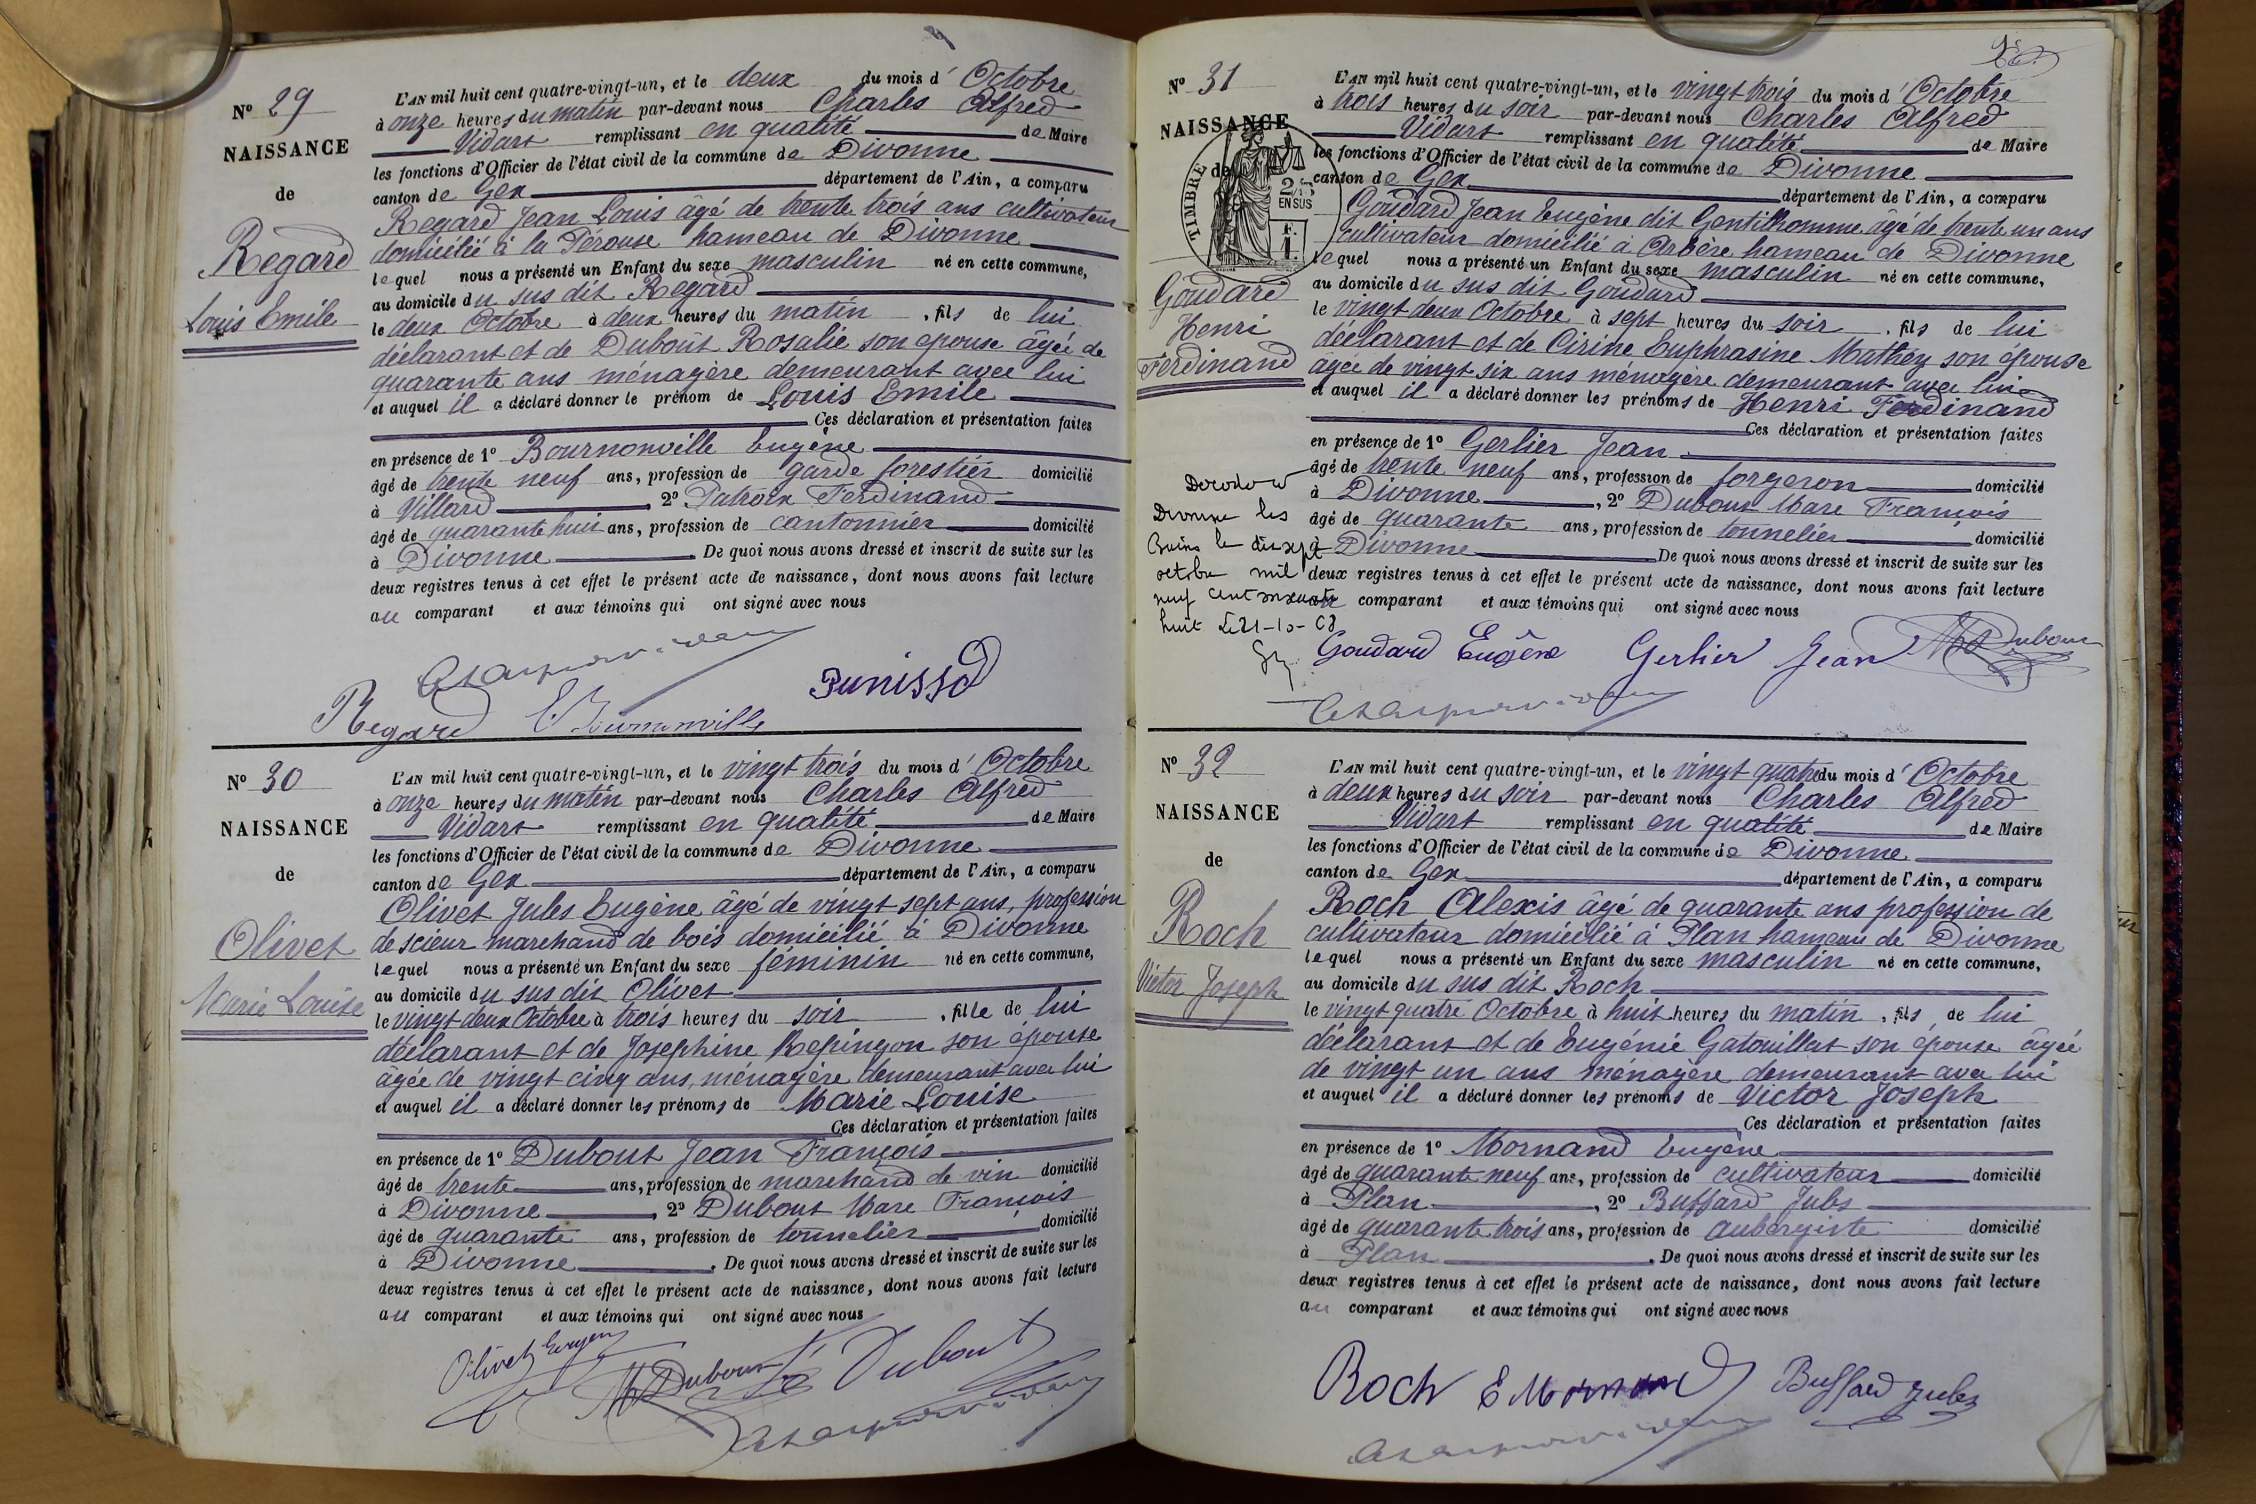 Nº 29
NAISSANCE
de
Regard
Louis Emile
L'AN mil huit cent quatre-vingt-un, et le deux du mois d' Octobre
à onze heures du matin par-devant nous Charles Alfred
Vidart remplissant en qualité de Maire
les fonctions d'Officier de l'état civil de la commune de Divonne
canton de Gex département de l'Ain, a comparu
Regard Jean Louis âgé de trente trois ans cultivateur
domicilié à la Pérouse hameau de Divonne
lequel nous a présenté un Enfant du sexe masculin né en cette commune,
au domicile du sus dit Regard
le deux Octobre à deux heures du matin , fils de lui
déclarant et de Dubout Rosalie son épouse âgée de
quarante ans ménagère demeurant avec lui
et auquel il a déclaré donner le prénom de Louis Emile
Ces déclaration et présentation faites
en présence de 1º Bournonville Eugène
âgé de trente neuf ans, profession de garde forestier domicilié
à Villard , 2º Ferdinand
âgé de quarante huit ans, profession de cantonnier domicilié
à Divonne . De quoi nous avons dressé et inscrit de suite sur les
deux registres tenus à cet effet le présent acte de naissance, dont nous avons fait lecture
au comparant et aux témoins qui ont signé avec nous
Regard E Bournonville
Nº 30
NAISSANCE
de
Olivet
Marie Louise
L'AN mil huit cent quatre-vingt-un, et le vingt trois du mois d' Octobre
à onze heures du matin par-devant nous Charles Alfred
Vidart remplissant en qualité de Maire
les fonctions d'Officier de l'état civil de la commune de Divonne
canton de Gex département de l'Ain, a comparu
Olivet Jules Eugène âgé de vingt sept ans, profession
de scieur marchand de bois domicilié à Divonne
lequel nous a présenté un Enfant du sexe féminin né en cette commune,
au domicile du sus dit Olivet
le vingt deux Octobre à trois heures du soir , fille de lui
déclarant et de Josephine Repingon son épouse
âgée de vingt cinq ans, ménagère demeurant avec lui
et auquel il a déclaré donner les prénoms de Marie Louise
Ces déclaration et présentation faites
en présence de 1º Dubout Jean François
âgé de trente ans, profession de marchand de vin domicilié
à Divonne , 2º Dubout Marc François
âgé de quarante ans, profession de tonnelier domicilié
à Divonne . De quoi nous avons dressé et inscrit de suite sur les
deux registres tenus à cet effet le présent acte de naissance, dont nous avons fait lecture
au comparant et aux témoins qui ont signé avec nous
Olivet Eugène
Dubout Dubout
Nº 31
NAISSANCE
de
TIMBRE
2
EN SUS
Goudard
Henri
Ferdinand
L'AN mil huit cent quatre-vingt-un, et le vingt trois du mois d' Octobre
à trois heures du soir par-devant nous Charles Alfred
Vidart remplissant en qualité de Maire
les fonctions d'Officier de l'état civil de la commune de Divonne
canton de Gex département de l'Ain, a comparu
Goudard Jean Eugène dit Gentilhomme âgé de trente un ans
cultivateur domicilié à Arbère hameau de Divonne
lequel nous a présenté un Enfant du sexe masculin né en cette commune,
au domicile du sus dit Goudard
le vingt deux Octobre à sept heures du soir , fils de lui
déclarant et de Cirine Euphrasine Mathey son épouse
âgée de vingt six ans ménagère demeurant avec lui
et auquel il a déclaré donner les prénoms de Henri Ferdinand
Ces déclaration et présentation faites
en présence de 1º Gerlier Jean
âgé de trente neuf ans, profession de forgeron domicilié
à Divonne , 2º Dubout Marc François
âgé de quarante ans, profession de tonnelier domicilié
à Divonne . De quoi nous avons dressé et inscrit de suite sur les
deux registres tenus à cet effet le présent acte de naissance, dont nous avons fait lecture
au comparant et aux témoins qui ont signé avec nous
Divonne les
Bains le dix sept
octobre mil
neuf cent soixante
huit
Goudard Eugène Gerlier Jean Dubout
Nº 32
NAISSANCE
de
Roch
Victor Joseph
L'AN mil huit cent quatre-vingt-un, et le vingt quatre du mois d' Octobre
à deux heures du soir par-devant nous Charles Alfred
Vidart remplissant en qualité de Maire
les fonctions d'Officier de l'état civil de la commune de Divonne
canton de Gex département de l'Ain, a comparu
Roch Alexis âgé de quarante ans profession de
cultivateur domicilié à Plan hameau de Divonne
lequel nous a présenté un Enfant du sexe masculin né en cette commune,
au domicile du sus dit Roch
le vingt quatre Octobre à huit heures du matin , fils de lui
déclarant et de Eugénie Gatouillat son épouse âgée
de vingt un ans ménagère demeurant avec lui
et auquel il a déclaré donner les prénoms de Victor Joseph
Ces déclaration et présentation faites
en présence de 1º Mornand Eugène
âgé de quarante neuf ans, profession de cultivateur domicilié
à Plan , 2º Buffard Jules
âgé de quarante trois ans, profession de aubergiste domicilié
à Plan . De quoi nous avons dressé et inscrit de suite sur les
deux registres tenus à cet effet le présent acte de naissance, dont nous avons fait lecture
au comparant et aux témoins qui ont signé avec nous
Roch E Mornand Buffard Jules